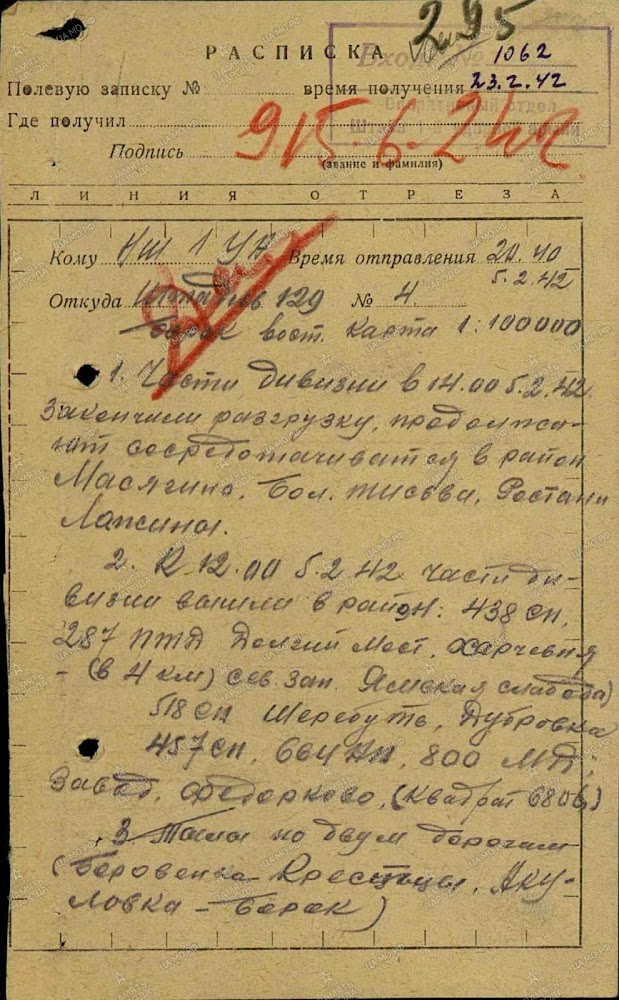 295
РАСПИСКА
Вход. № 1062
Полевую записку № время получения 23.2.42
Где получил
Подпись
(звание и фамилия)
915. 6.2 42
ЛИНИЯ ОТРЕЗА
Кому НШ 1 УА Время отправления 20.40
5.2.42
Откуда Штадив 129 № 4
Барак вост. карта 1:100000
1. Части дивизии в 14.00 5.2.42.
Закончили разгрузку, продолжа-
ют сосредотачиватся в район
Масягино, Бол. Тисова, Ростани
Лажины.
2. К 12.00 5.2.42 части ди-
визии вышли в район: 438 сп,
287 ПТД Долгий Мост, Харчевня
- (в 4 км) сев. зап. Ямская слабода)
518 сп Шеребуть, Дубровка
457 сп, 664 АП, 800 МД;
Завод, Федорково, (Квадрат 6806)
3 Тылы по двум дорогам
(Боровенка - Крестцы, Аку-
ловка - Барак)